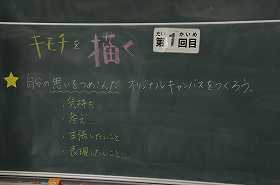 キモチを描く
第1回目
だい かいめ
自分の思いをつめこんだ オリジナルキャンバスをつくろう。
・気持ち
・考え
・主張したいこと
・表現したいこと